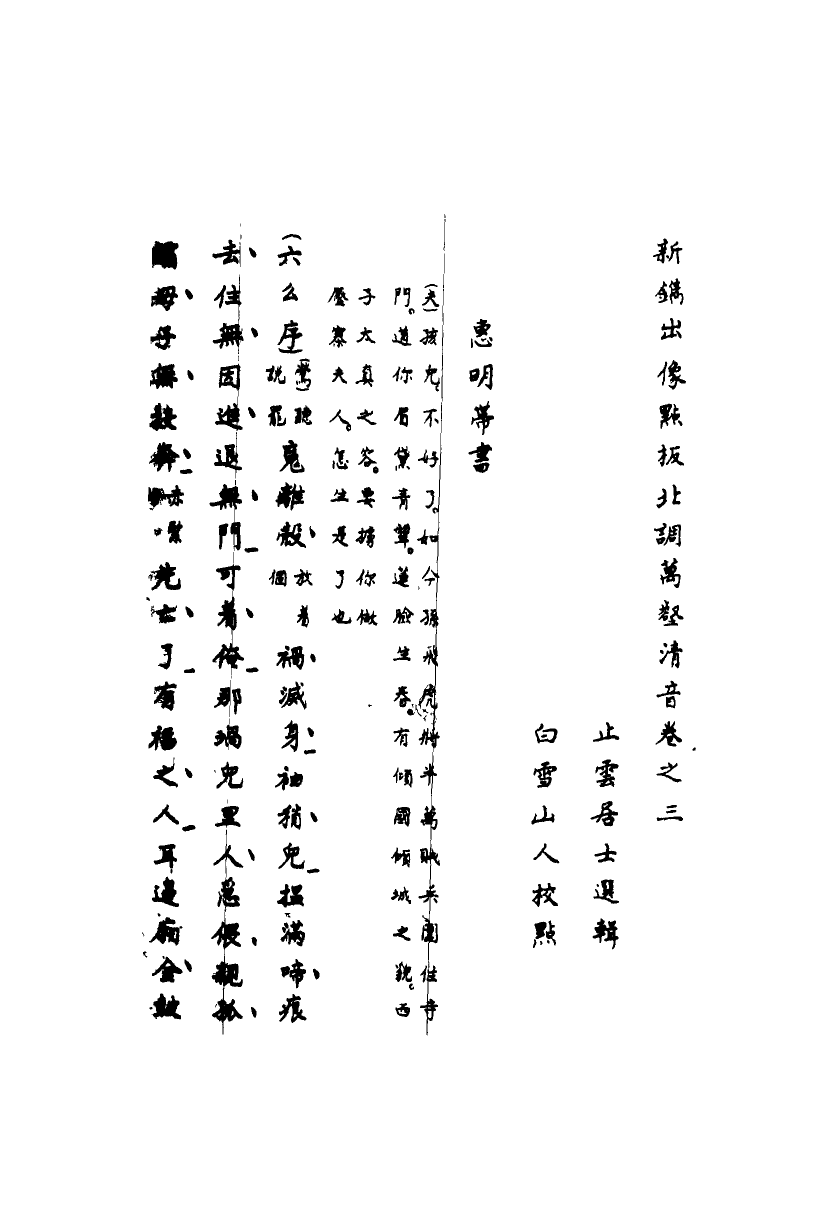 新鐫出像點板北調萬壑清音卷之三
止雲居士選輯
白雪山人校點
惠明帶書
(夫)孩兒。不好了。如今孫飛虎將半萬賊兵圍住寺
門。道你眉黛青顰。蓮臉生春。有傾國傾城之貌。西
子太真之容。要擄你做
壓寨夫人。怎生是了也
(六么序)(鶯)聽說罷魂離殼放着個禍滅身袖稍兒揾滿啼痕
去住無因進退無門可着俺那堝兒里人急偎親孤
孀母子無投奔赤緊喒死亡了有福之人耳邊廂金皷